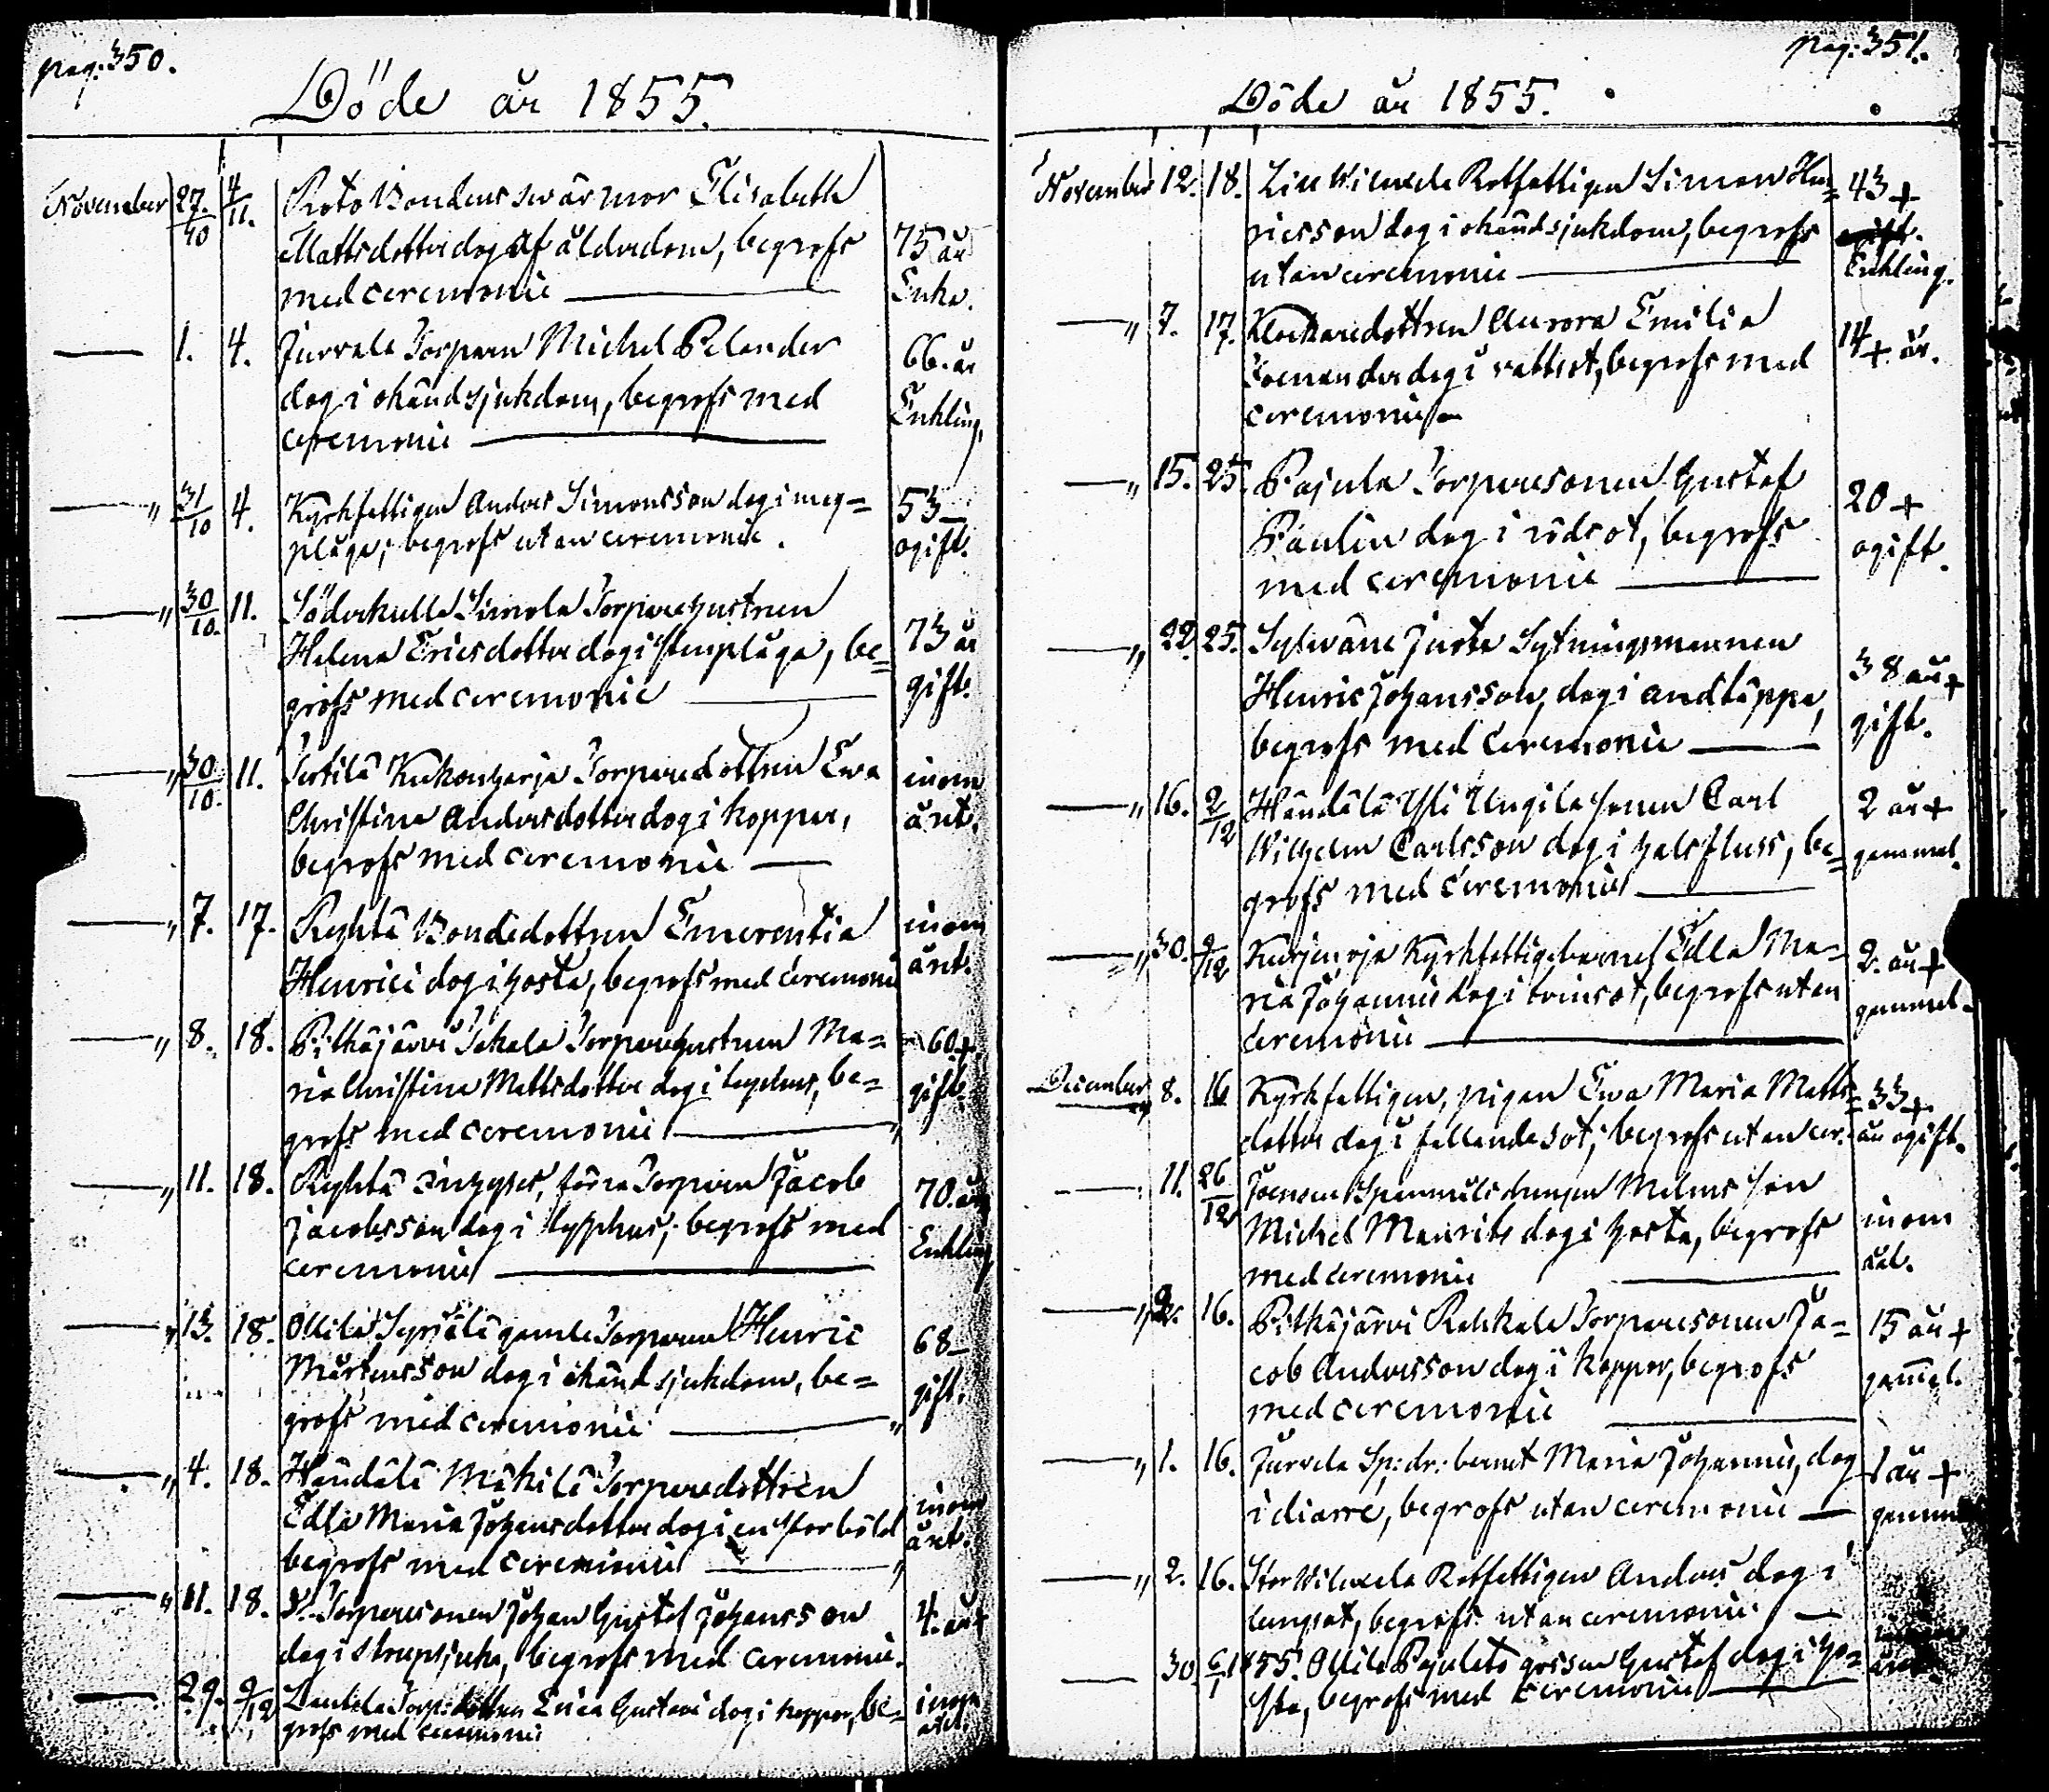 pag: 350.
Döde år 1855.
November 27./10 4/11. Roto Bondens svärmor Elisabeth
Mattsdotter dog af ålderdom, begrofs
med ceremonie
75 år
Enka.
1. 4. Jurvala Torparen Michel Pelander
dog i okänd sjukdom, begrofs med
ceremonie
66. år
Enkling,
" 31/10 4. Kyrkfattigen Anders Simonsson dog i mag=
plåga, begrofs utan ceremonie.
53
ogift.
" 30/10. 11. Söderkulla Simola Torparehustrun
Helena Ericsdotter dog i stenplåga, be=
grofs med ceremonie
73 år
gift.
" 30/10. 11. Torparedottren Ewa
Christina Andersdotter dog i koppor,
begrofs med ceremonie
inom
året.
" 7. 17. Ryhtä Bondedottren Emerentia
Henrici dog i hosta, begrofs med ceremonie
inom
året.
" 8. 18. Pitkäjärvi Torparehustrun Ma=
ria Christina Mattsdotter dog i typhus, be=
grofs med ceremonie "
60 +
gift.
" 11. 18. Ryhtä förra Torparen Jacob
Jacobsson dog i typhus, begrofs med
ceremonie
70. år
Enkling
" 13. 18. Ollila Syrjälä gamle Torparen Henric
Mårtensson dog i okänd sjukdom, be=
grofs med ceremonie "
68
gift.
" 4. 18. Händälä Mäkilä Torparedottren
Edla Maria Johansdotter dog i en stor böld
begrofs med ceremonie "
inom
året.
" 11. 18. Torparesonen Johan Gustaf Johansson
dog i strupsjuka, begrofs med ceremonie.
4. år +
29. 2/12 Torp: dottren Erica Gustava dog i koppor, be=
grofs med ceremonie
inom
året.
pag: 351.
Döde år 1855.
November 12. 18. Lill Wilmola Rotfattigen Simon Hen=
ricsson dog i okänd sjukdom, begrofs
utan ceremonie
43 +
Enkling.
" 7. 17. Klockaredottren Aurora Emilia
dog i vattsot, begrofs med
ceremonie
14 + år.
" 15. 25. Pajula Torparesonen Gustaf
Paulin dog i rödsot, begrofs
med ceremonie
20 +
ogift.
" 22. 25. Sytningsmannen
Henric Johansson, dog i andtäppa,
begrofs med ceremonie
38 år +
gift.
" 16. 2/12 Händälä Yli Ungila sonen Carl
Wilhelm Carlsson dog i halsfluss, be=
grofs med ceremonie
2 år +
gammal.
" 30. 2/12 Kyrkfattigebarnet Edla Ma=
ria Johannis dog i tvinsot, begrofs utan
ceremonie
2. år +
gammal.
December 8. 16 Kyrkfattigen, pigan Ewa Maria Matts=
dotter dog i fallandesot, begrofs utan cer.
33 +
år ogift.
11. 26/12 son
Michel Maurits dog i hosta, begrofs
med ceremonie
inom
året.
" 2. 16. Pitkäjärvi Torparesonen Ja=
cob Andersson dog i koppor, begrofs
med ceremonie
15 år +
gamal.
" 1. 16. Jurvala Sp: dr: barnet Maria Johannis, dog
i diarré, begrofs utan ceremonie
1 år +
" 2. 16. Stor Wilmola Rotfattigen Anders dog i
lungsot, begrofs utan ceremonie
30 6/1 1855. Ollila gossen Gustaf dog i ho=
sta, begrofs med ceremonie